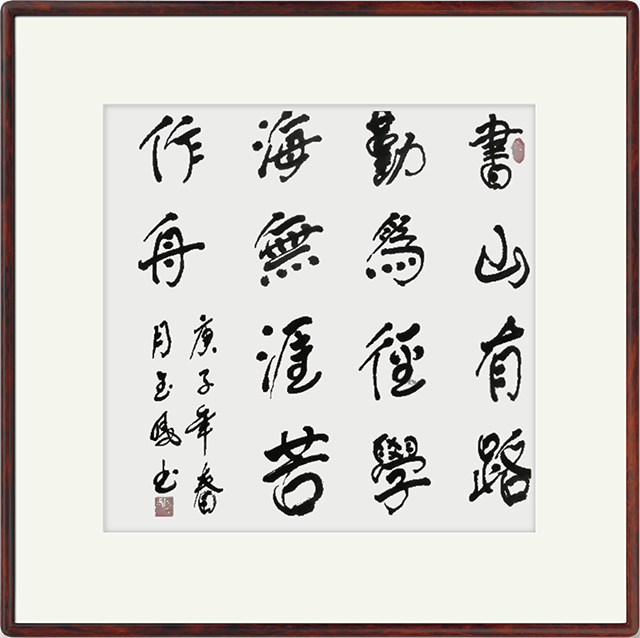 書山有路
勤爲徑學
海無涯苦
作舟
庚子年春
月玉书